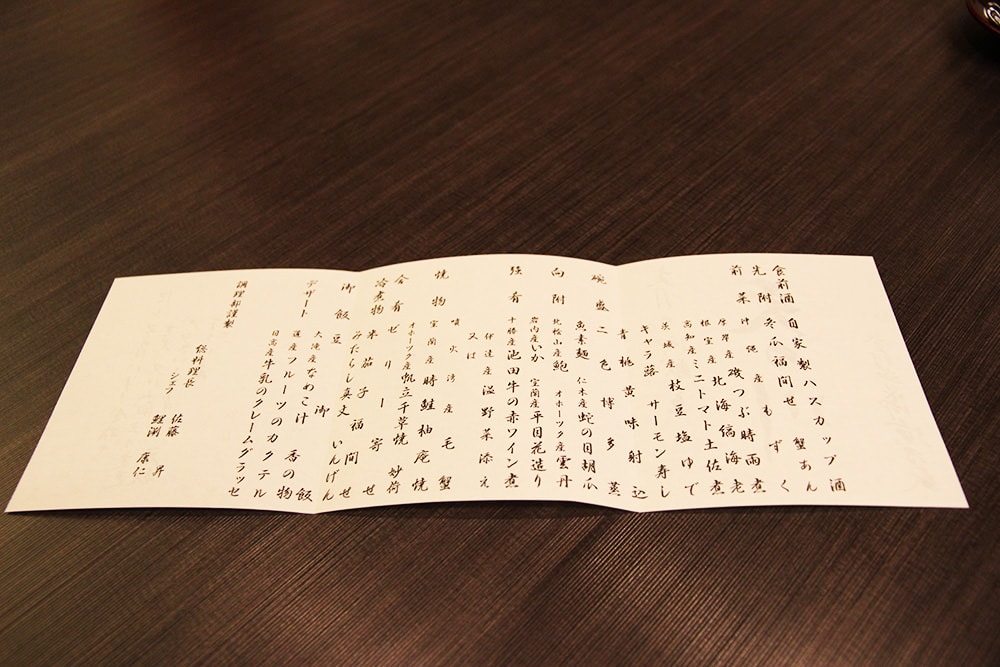 食前酒 自家製ハスカップ酒
先附 冬瓜福間せ 蟹あん
前菜 沖縄産もずく
厚岸産 磯つぶ時雨煮
根室産 北海縞海老
高知産 ミニトマト土佐煮
茨城産 枝豆塩ゆで
キャラ蕗 サーモン寿し
青桃黄味射込
碗盛 二色博多蒸
魚素麺 仁木産 蛇の目胡瓜
向附 北桧山産 鮑 オホーツク産 雲丹
岩内産 いか 室蘭産 平目花造り
強肴 十勝産 池田牛の赤ワイン煮
伊達産 温野菜添え
又は
噴火湾産毛蟹
焼物 室蘭産 時鮭柚庵焼
オホーツク産 帆立千草焼 妙荷
合肴 ゼリー寄せ
冷煮物 米茄子福間せ
みたらし真丈 いんげん
御飯 豆御飯
大滝産 なめこ汁 香の物
デザート 選産 フルーツのカクテル
日高産 牛乳のクレームグラッセ
調理部謹製
総料理長 佐藤 昇
シェフ 鯉渕 康仁